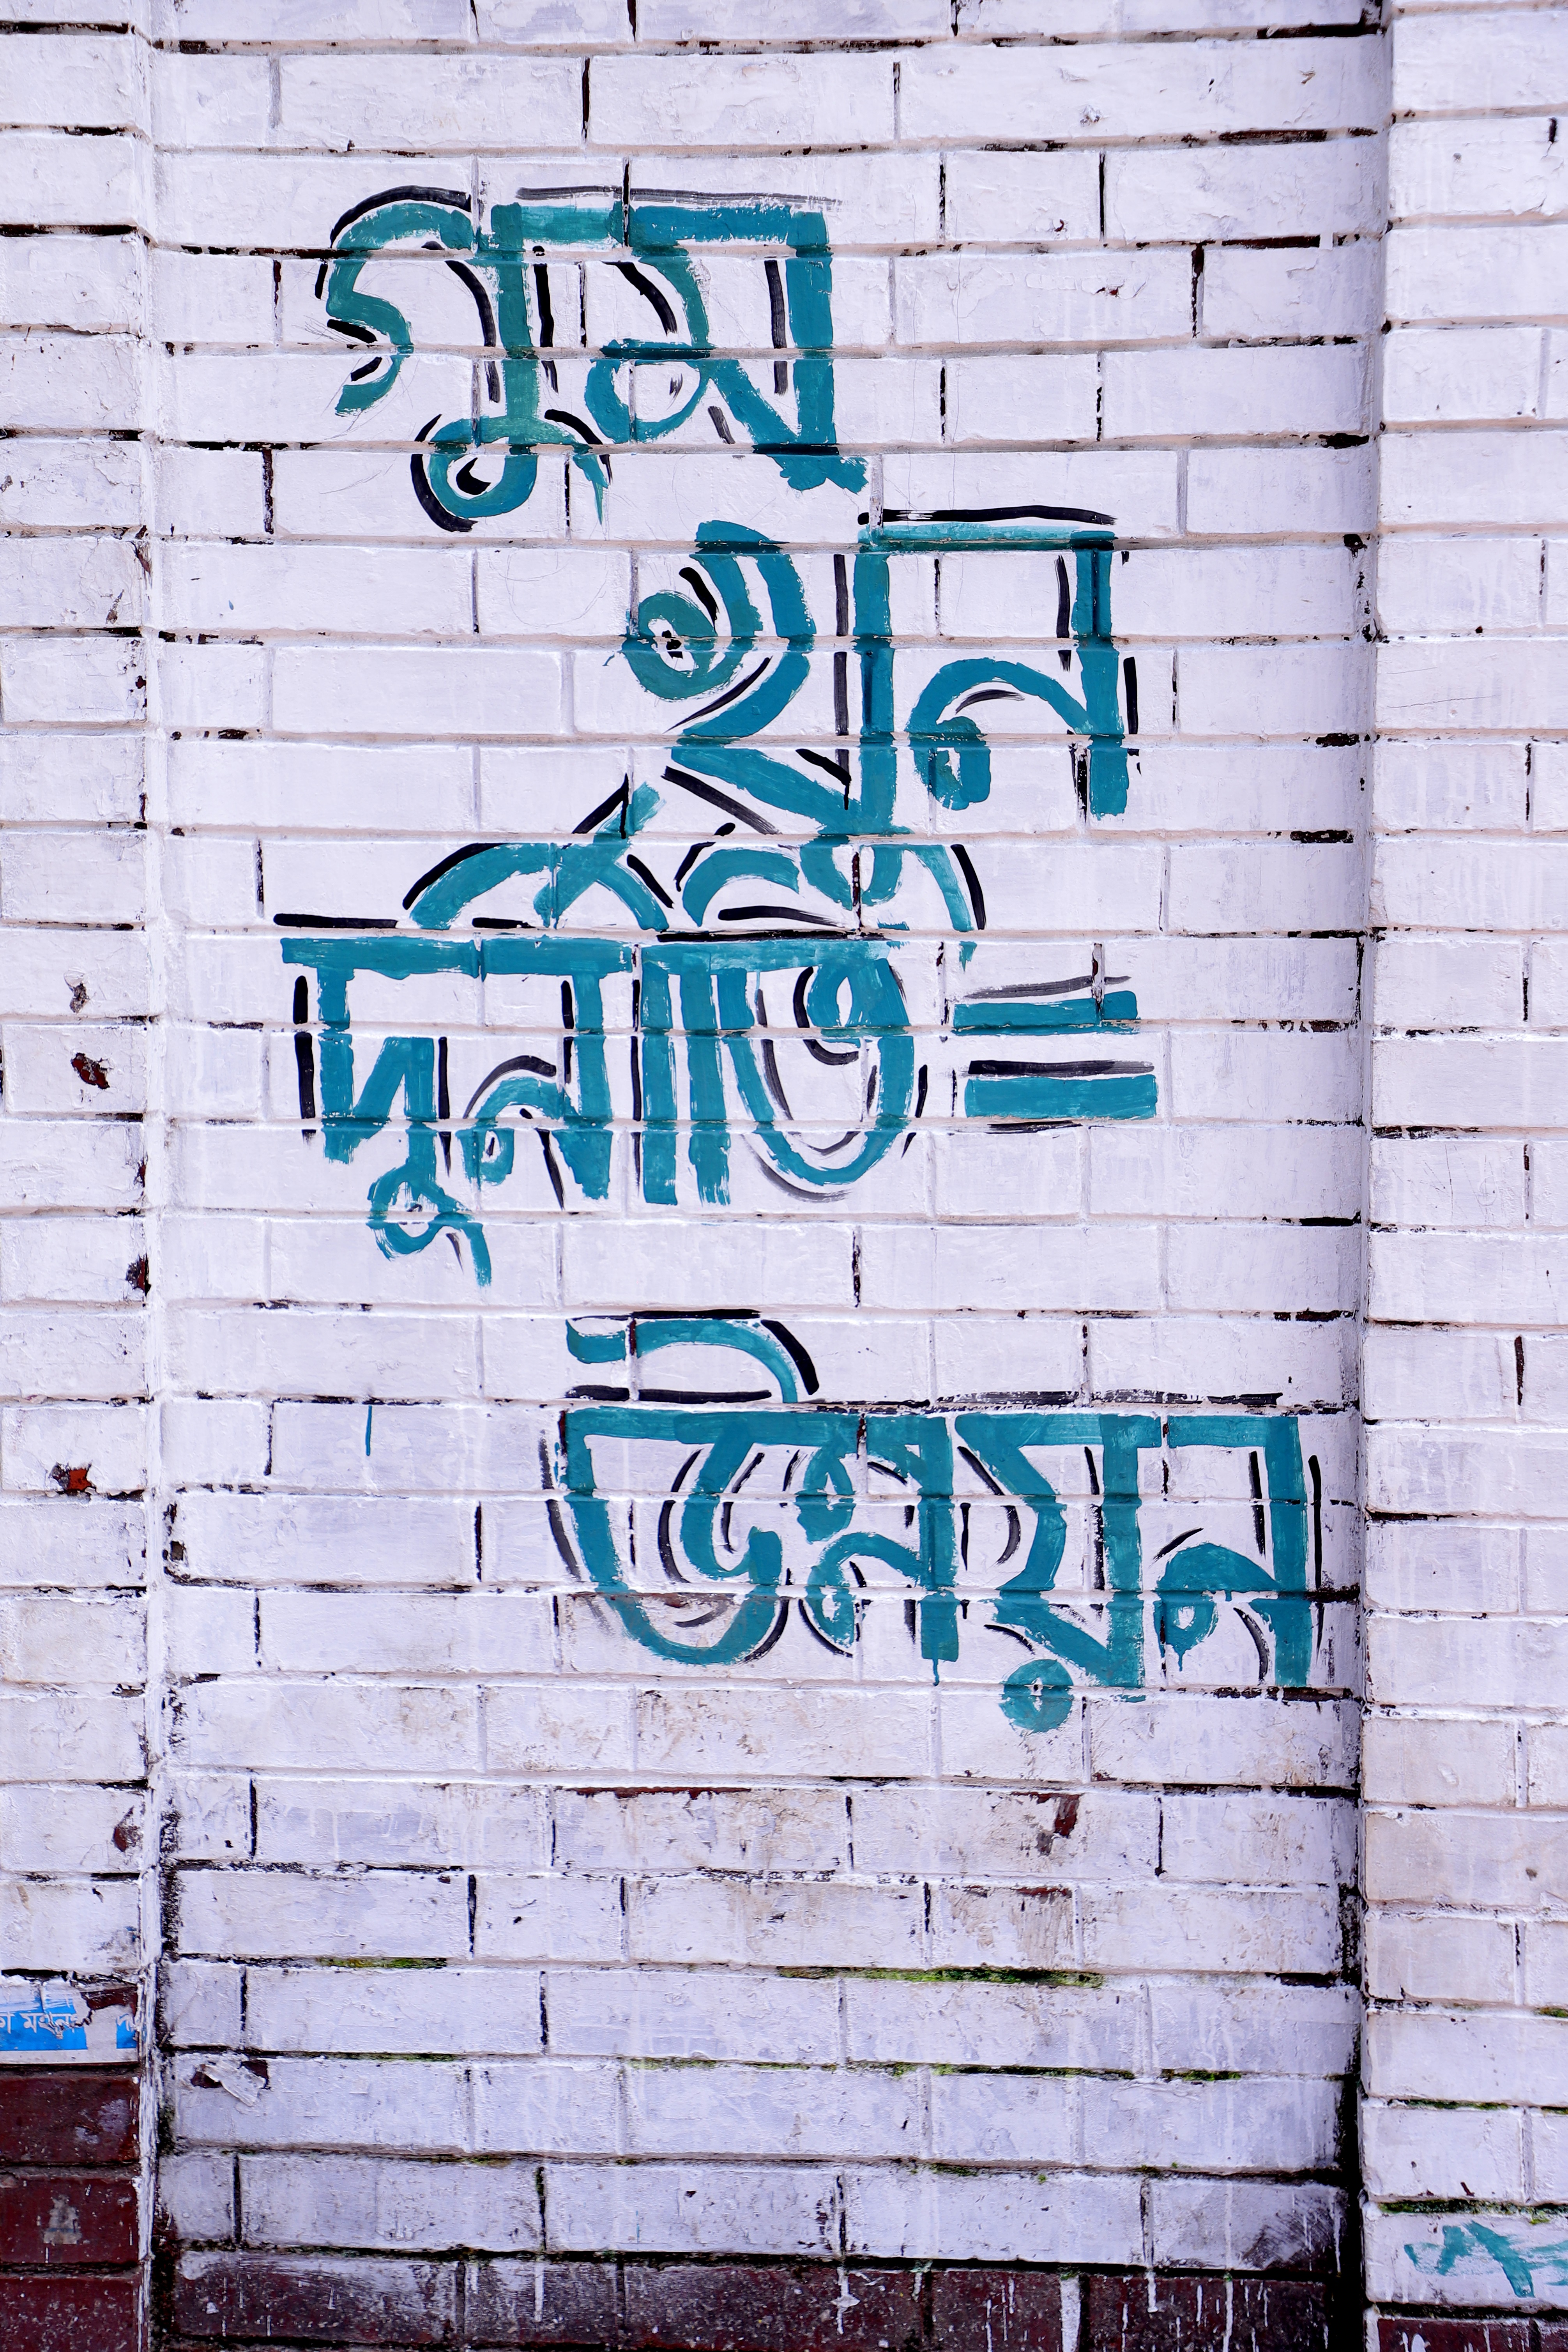 গুম
খুন
দুর্নীতি =
উন্নয়ন